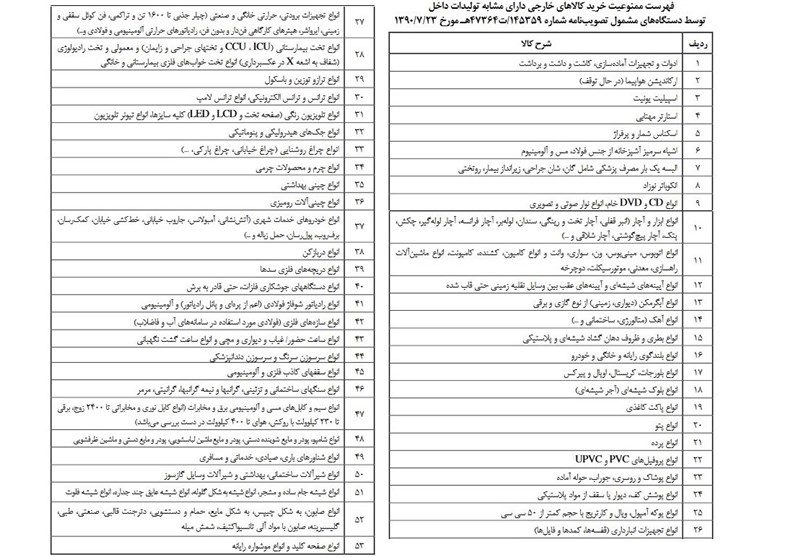 فهرست ممنوعیت خرید کالاهای خارجی دارای مشابه تولیدات داخل
توسط دستگاه‌های مشمول تصویب‌نامه شماره ۱۴۵۳۵۹/ت۴۷۳۶۴هـ مورخ ۱۳۹۰/۷/۲۳
ردیف شرح کالا
۱ ادوات و تجهیزات آماده‌سازی، کاشت و داشت و برداشت
۲ ارکاندیشن هواپیما (در حال توقف)
۳ اسپیلیت یونیت
۴ استارتر مهتابی
۵ اسکناس شمار و پرفراژ
۶ اشیاء سرمیز آشپزخانه از جنس فولاد، مس و آلومینیوم
۷ البسه یک بار مصرف پزشکی شامل گان، شان جراحی، زیرانداز بیمار، روتختی
۸ انکوباتور نوزاد
۹ انواع CD و DVD خام، انواع نوار صوتی و تصویری
۱۰ انواع ابزار و آچار (انبر قفلی، آچار تخت و رینگی، سندان، لوله‌بر، آچار فرانسه، آچار لوله‌گیر، چکش،
پتک، آچار پیچ‌گوشتی، آچار شلاقی و ...)
۱۱ انواع اتوبوس، مینی‌بوس، ون، سواری، وانت و انواع کامیون، کشنده، کامیونت، انواع ماشین‌آلات
راهسازی، معدنی، موتورسیکلت، دوچرخه
۱۲ انواع آیینه‌های شیشه‌ای و آیینه‌های عقب بین وسایل نقلیه زمینی حتی قاب شده
۱۳ انواع آبگرمکن (دیواری، زمینی) از نوع گازی و برقی
۱۴ انواع آهک (متالورژی، ساختمانی و ...)
۱۵ انواع بطری و ظروف دهان گشاد شیشه‌ای و پلاستیکی
۱۶ انواع بلندگوی رایانه و خانگی و خودرو
۱۷ انواع بلورجات، کریستال، اوپال و پیرکس
۱۸ انواع بلوک شیشه‌ای (آجر شیشه‌ای)
۱۹ انواع پاکت کاغذی
۲۰ انواع پتو
۲۱ انواع پرده
۲۲ انواع پروفیل‌های PVC و UPVC
۲۳ انواع پوشاک و روسری، جوراب، حوله آماده
۲۴ انواع پوشش کف، دیوار یا سقف از مواد پلاستیکی
۲۵ انواع پوکه آمپول، ویال و کارتریج با حجم کمتر از ۵۰ سی سی
۲۶ انواع تجهیزات انبارداری (قفسه‌ها، کمدها و فایل‌ها)
۲۷ انواع تجهیزات برودتی، حرارتی خانگی و صنعتی (چیلر جذبی تا ۱۶۰۰ تن و تراکمی، فن کوئل سقفی و
زمینی، ایرواشر، هیترهای کارگاهی فن‌دار و بدون فن، رادیاتورهای حرارتی آلومینیومی و فولادی و...)
۲۸ انواع تخت بیمارستانی (CCU ، ICU و تختهای جراحی و زایمان) و معمولی و تخت رادیولوژی
(شفاف به اشعه X در عکسبرداری) انواع تخت خواب‌های فلزی بیمارستانی و خانگی
۲۹ انواع ترازو توزین و باسکول
۳۰ انواع ترانس و ترانس الکترونیکی، انواع ترانس لامپ
۳۱ انواع تلویزیون رنگی (صفحه تخت و LCD و LED) کلیه سایزها، انواع تیونر تلویزیون
۳۲ انواع جک‌های هیدرولیکی و پنوماتیکی
۳۳ انواع چراغ روشنایی (چراغ خیابانی، چراغ پارکی، ...)
۳۴ انواع چرم و محصولات چرمی
۳۵ انواع چینی بهداشتی
۳۶ انواع چینی‌آلات رومیزی
۳۷ انواع خودروهای خدمات شهری (آتش‌نشانی، آمبولانس، جاروب خیابانی، خط‌کشی خیابان، کمک‌رسان،
برف‌روب، پول‌رسان، حمل زباله و ...)
۳۸ انواع دربازکن
۳۹ انواع دریچه‌های فلزی سدها
۴۰ انواع دستگاههای جوشکاری فلزات، حتی قادر به برش
۴۱ انواع رادیاتور شوفاژ فولادی (اعم از پره‌ای و پانل رادیاتور) و آلومینیومی
۴۲ انواع سازه‌های فلزی (فولادی مورد استفاده در سامانه‌های آب و فاضلاب)
۴۳ انواع ساعت حضور/ غیاب و دیواری و مچی و انواع ساعت گشت نگهبانی
۴۴ انواع سرسوزن سرنگ و سرسوزن دندانپزشکی
۴۵ انواع سقفهای کاذب فلزی و آلومینیومی
۴۶ انواع سنگهای ساختمانی و تزئینی، گرانیها و نیمه گرانیها، گرانیتی، مرمر
۴۷ انواع سیم و کابل‌های مسی و آلومینیومی برق و مخابرات (انواع کابل نوری و مخابراتی تا ۲۴۰۰ زوج، برقی
تا ۲۳۰ کیلوولت با روکش، هوای تا ۴۰۰ کیلوولت در دست بررسی می‌باشد)
۴۸ انواع شامپو، پودر و مایع شوینده دستی، پودر و مایع ماشین لباسشویی، پودر و مایع دستی و ماشین ظرفشویی
۴۹ انواع شناورهای باری، صیادی، خدماتی و مسافری
۵۰ انواع شیرآلات ساختمانی، بهداشتی و شیرآلات وسایل گازسوز
۵۱ انواع شیشه جام ساده و مشجر، انواع شیشه به شکل گلوله، انواع شیشه عایق چند جداره، انواع شیشه فلوت
۵۲ انواع صابون، به شکل چیپس، به شکل مایع، حمام و دستشویی، دترجنت قالبی، صنعتی، طبی،
گلیسیرینه، صابون با مواد آلی تانسیواکتیف، شمش میله
۵۳ انواع صفحه کلید و انواع موشواره رایانه